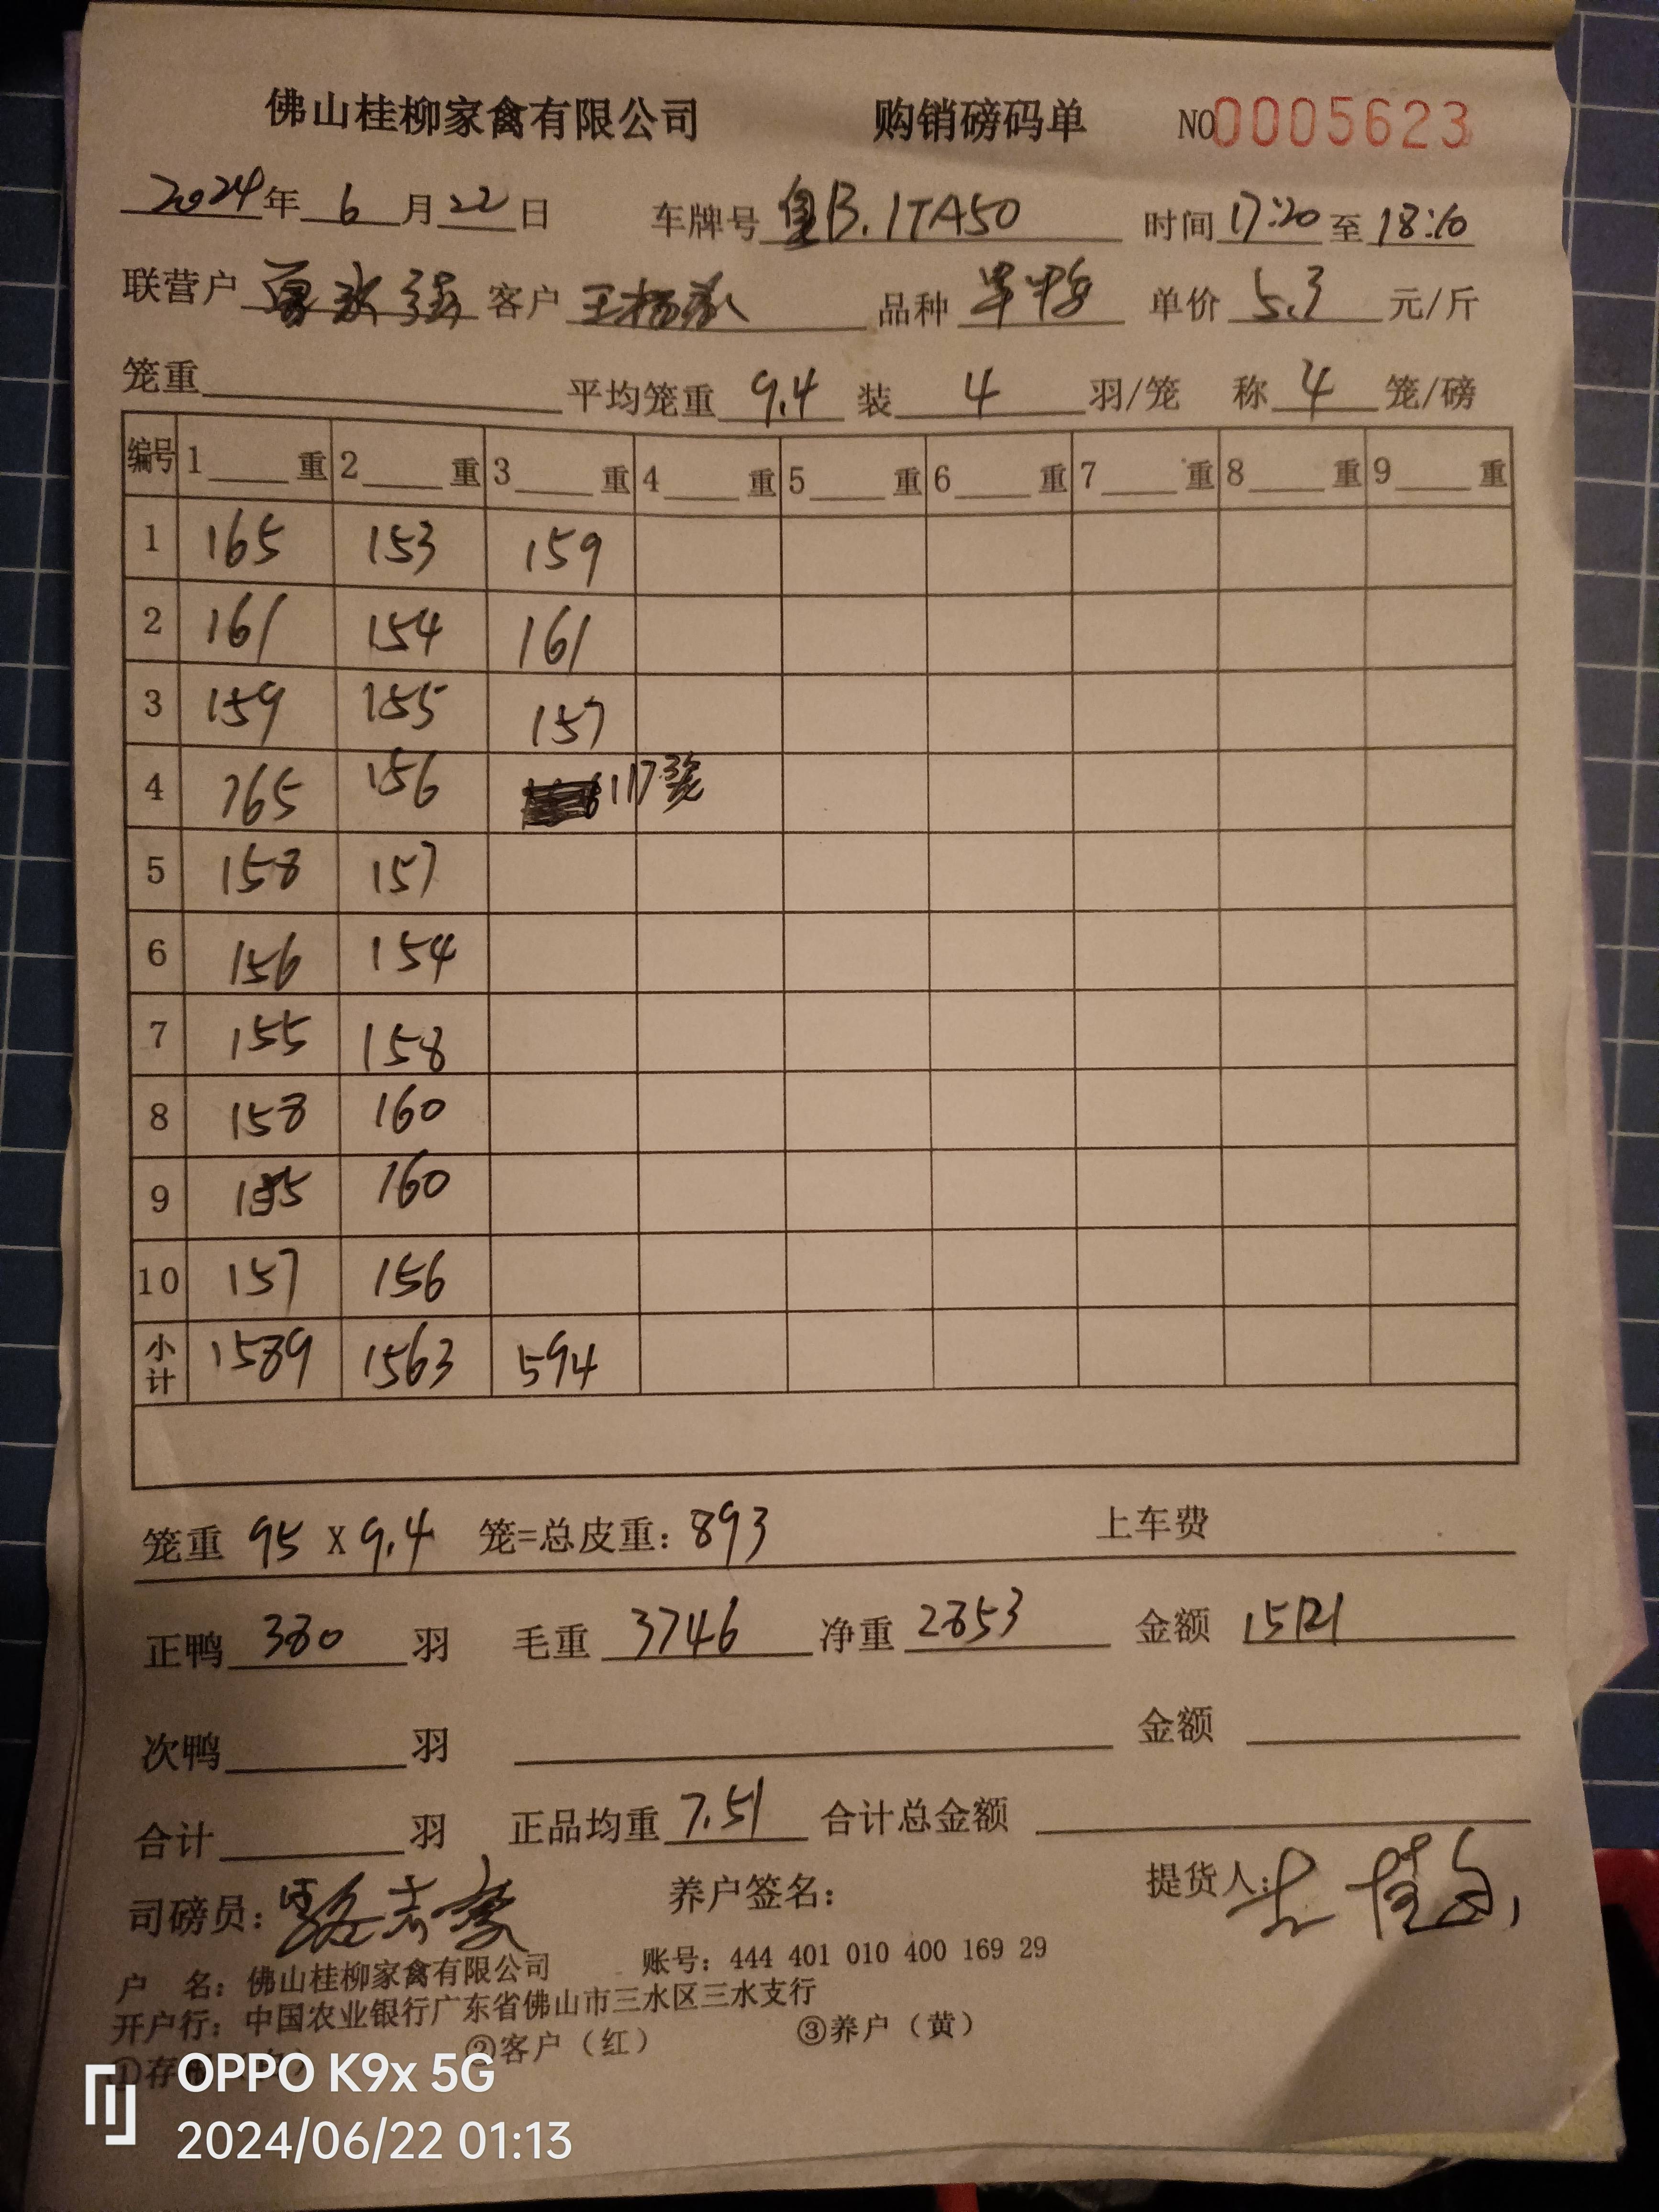 佛山桂柳家禽有限公司 购销磅码单 NO 0005623
2024年 6 月 22 日 车牌号 粤B.1TA50 时间 17:20 至 18:10
联营户 客户 品种 单价 5.3 元/斤
笼重 平均笼重 9.4 装 4 羽/笼 称 4 笼/磅
编号 1 重 2 重 3 重 4 重 5 重 6 重 7 重 8 重 9 重
1 165 153 159
2 161 154 161
3 159 155 157
4 165 156 117 3笼
5 158 157
6 156 154
7 155 158
8 158 160
9 155 160
10 157 156
小计 1589 1563 594
笼重 95 X 9.4 笼=总皮重: 893 上车费
正鸭 380 羽 毛重 3746 净重 2853 金额 15121
次鸭 羽 金额
合计 羽 正品均重 7.51 合计总金额
司磅员: 养户签名: 提货人:
户 名: 佛山桂柳家禽有限公司 账号: 444 401 010 400 169 29
开户行: 中国农业银行广东省佛山市三水区三水支行
①存 ②客户（红） ③养户（黄）
OPPO K9x 5G
2024/06/22 01:13